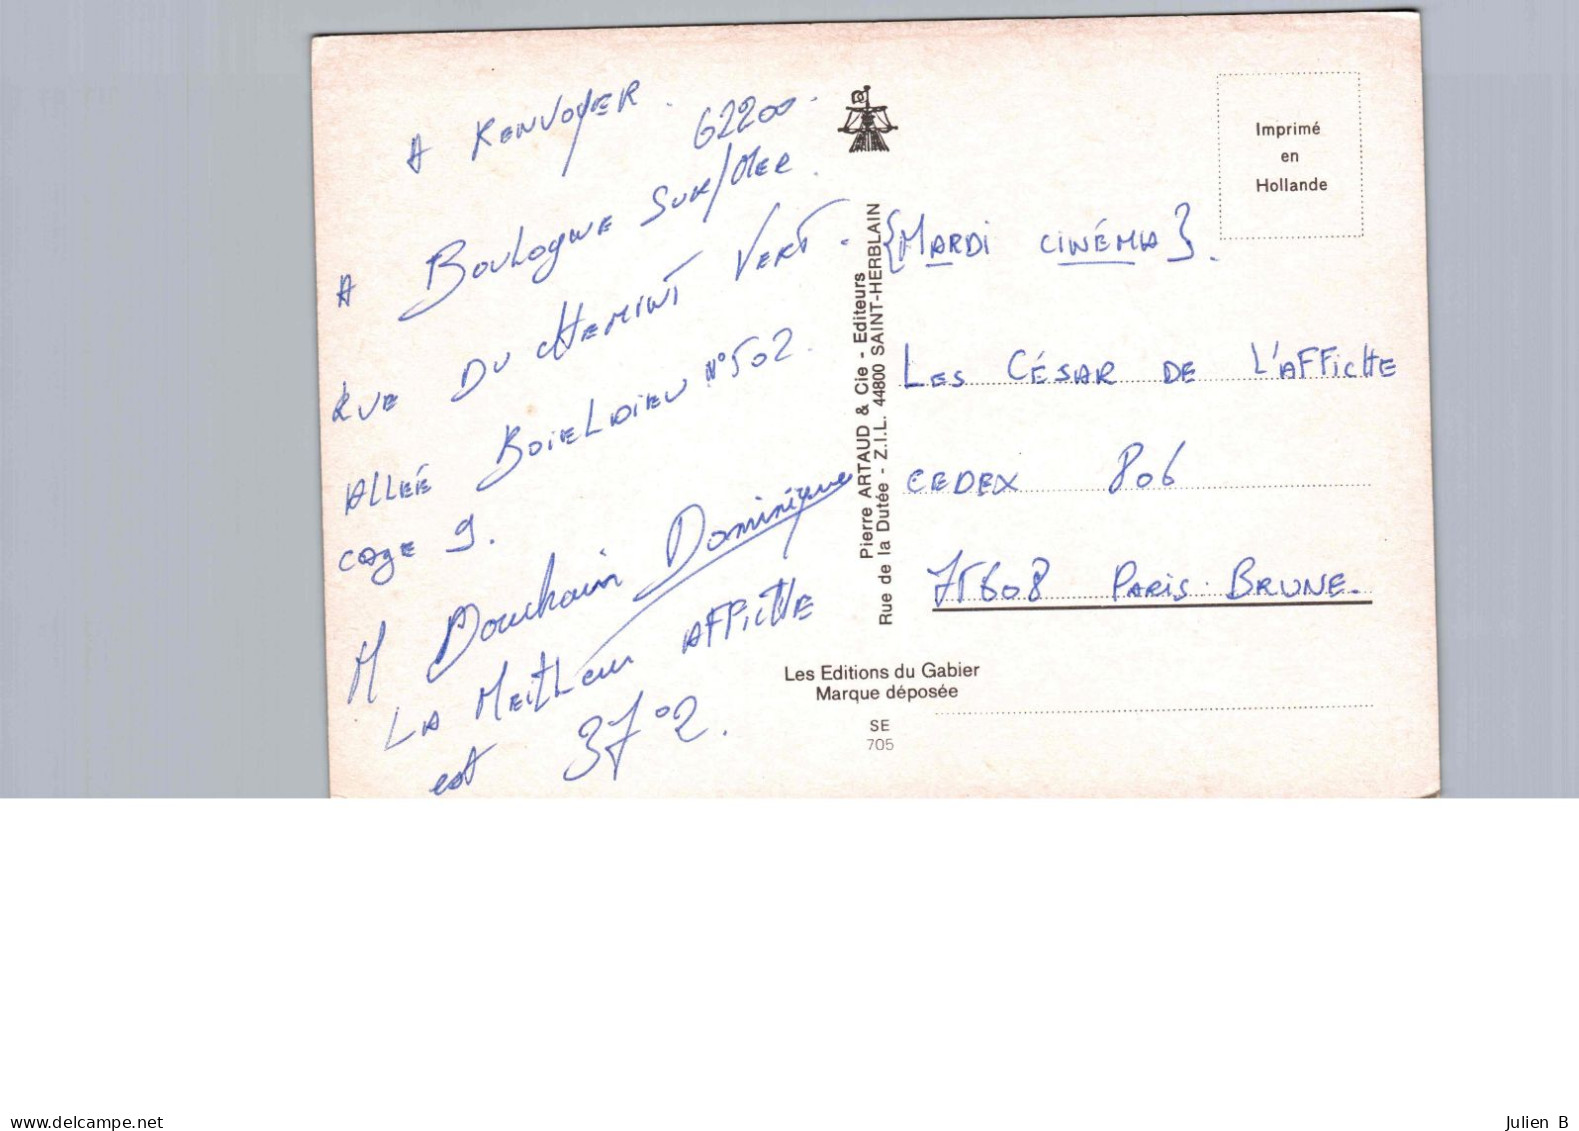 A RENVOYER.
62200.
A BOULOGNE SUR/MER.
RUE DU CHEMINT VERT.
ALLÉE BOIELDIEU N°502.
CAGE 9.
M Douchain Dominique
LA MEILLeur AFFICHE
est 37°2.
Pierre ARTAUD & Cie - Editeurs
Rue de la Dutée - Z.I.L. 44800 SAINT-HERBLAIN
Imprimé
en
Hollande
{MARDI CINÉMA}.
LES CÉSAR DE L'AFFICHE
CEDEX 806
75608 PARIS. BRUNE.
Les Editions du Gabier
Marque déposée
SE
705
www.delcampe.net
Julien B